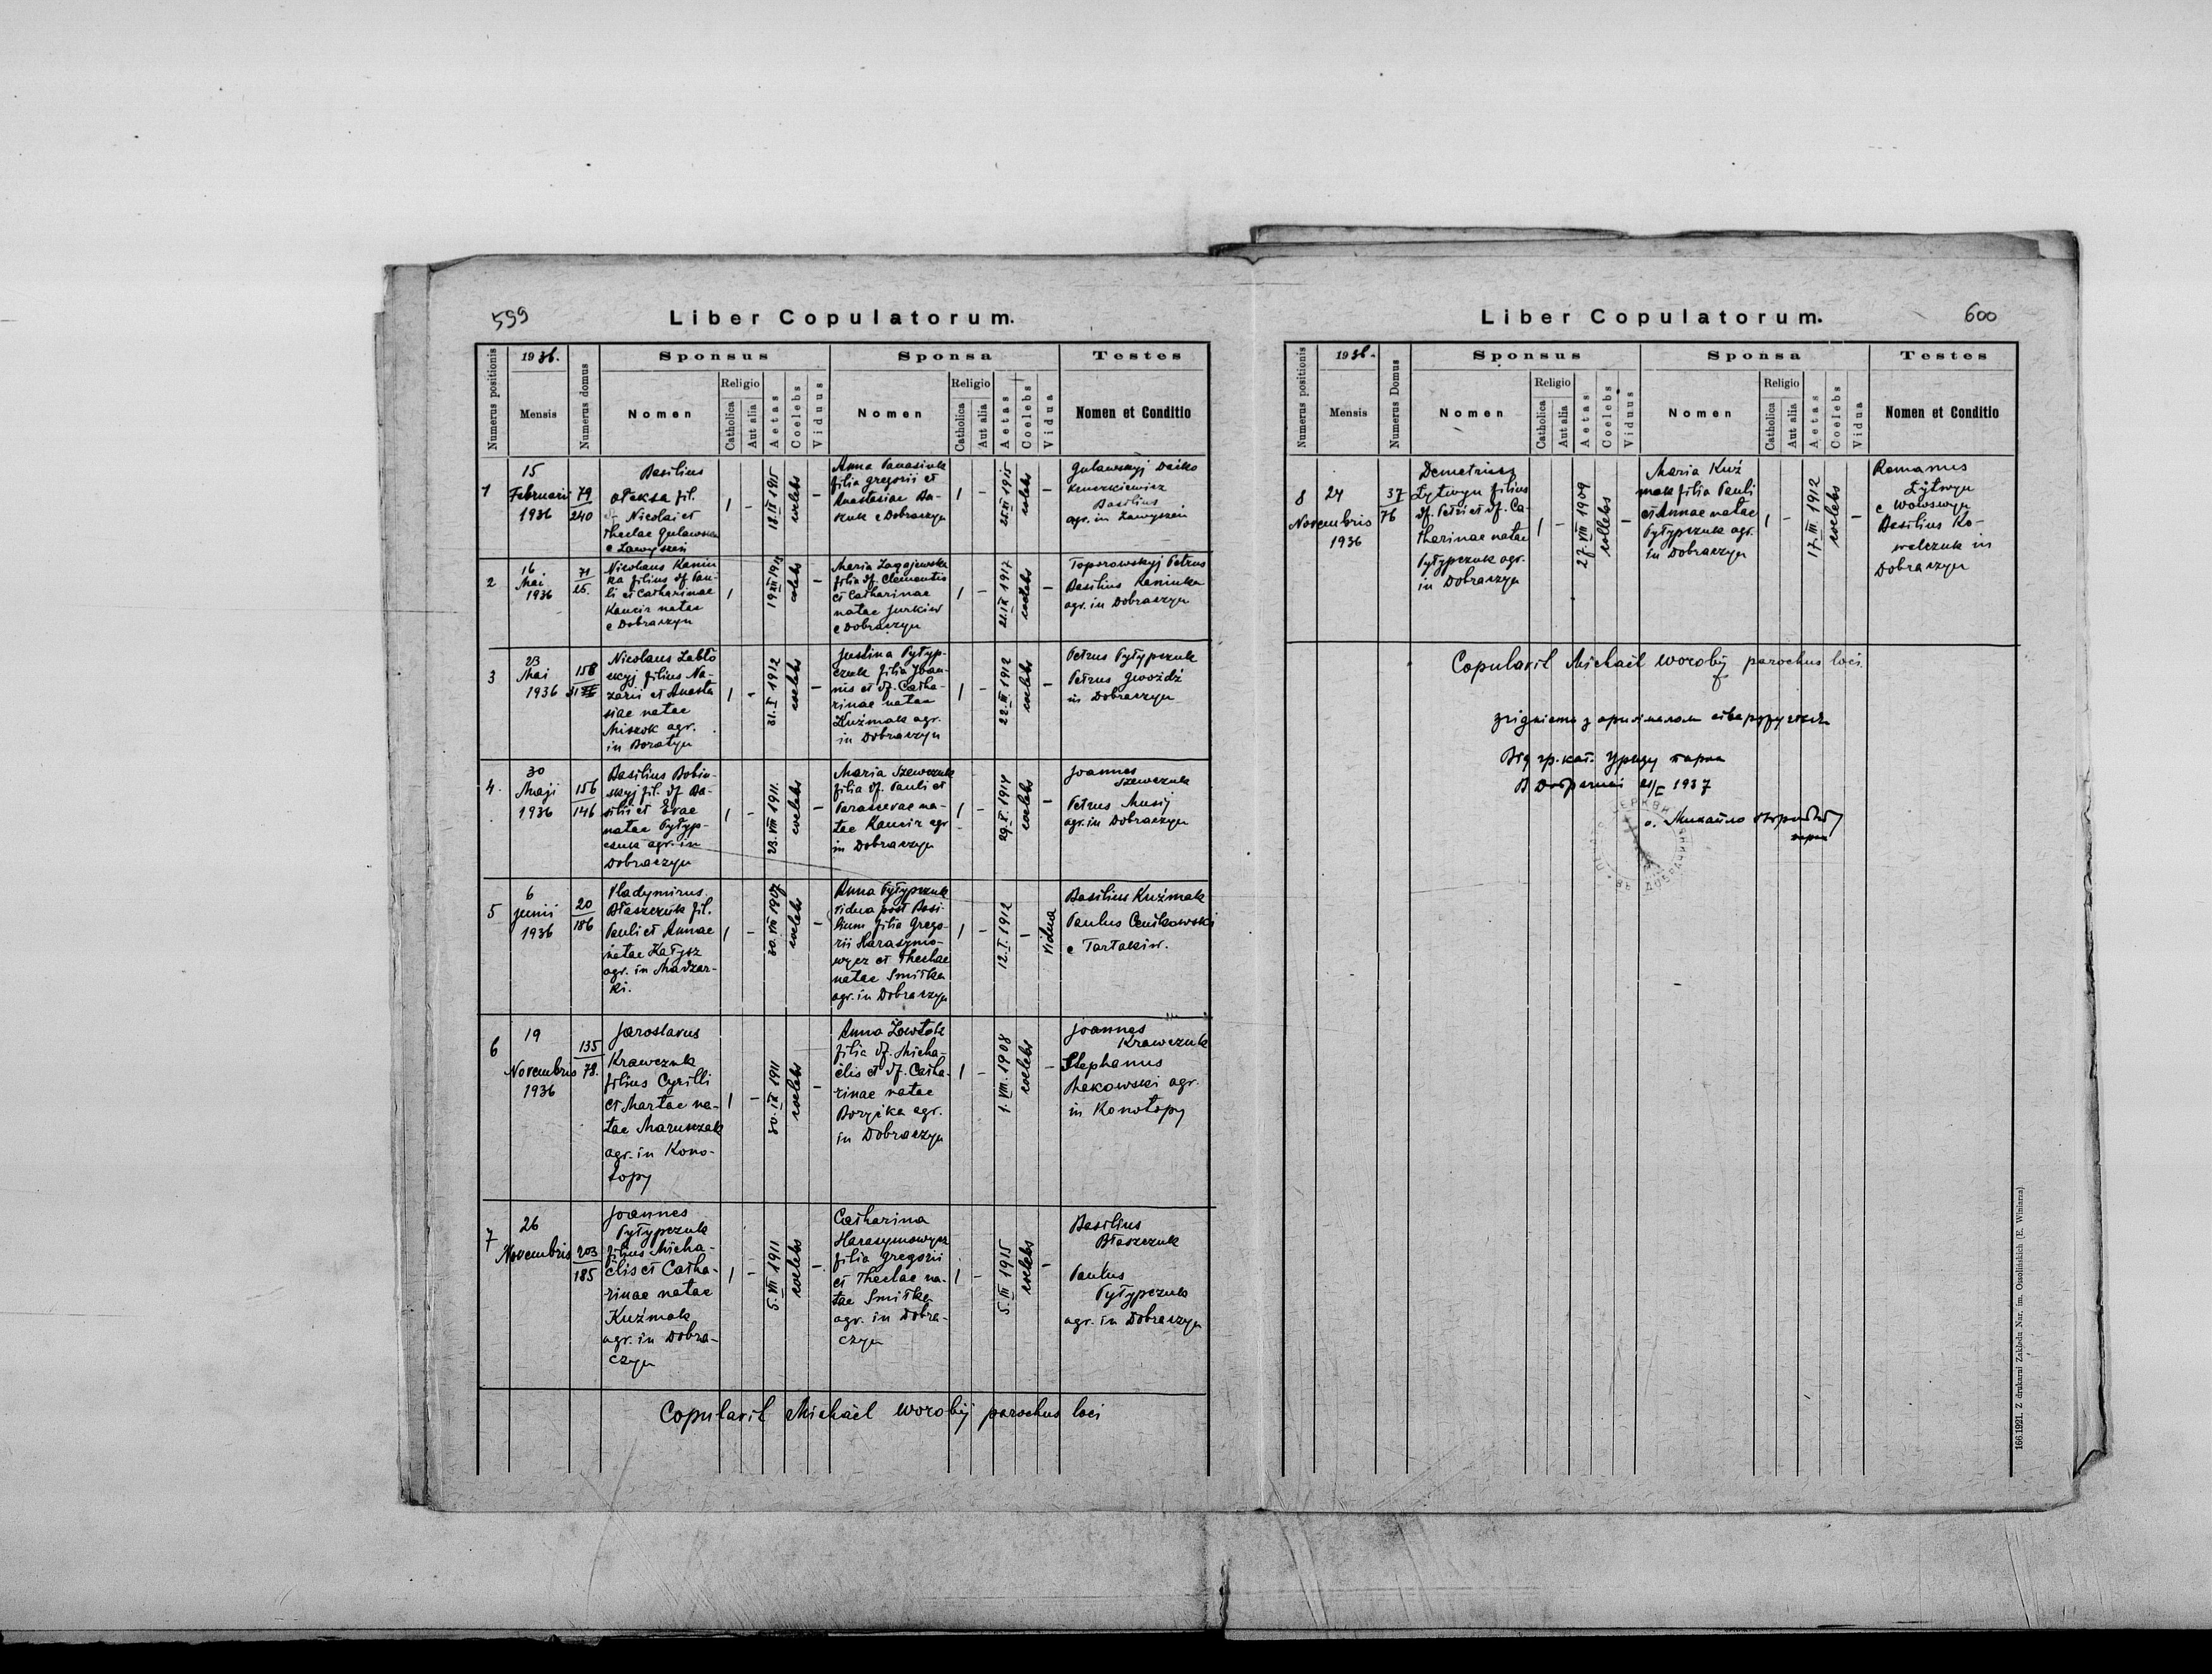 599
Liber Copulatorum.
Numerus positionis
1936.
Mensis
Numerus domus
Sponsus
Nomen
Religio
Catholica
Aut alia
Aetas
Coelebs
Viduus
Sponsa
Nomen
Religio
Catholica
Aut alia
Aetas
Coelebs
Vidua
Testes
Nomen et Conditio
1
15
Februarii
1936
79
240
Basilius
Ołeksa fil.
Nicolai et
Theclae Gulawska
e Zawyszeń
1
-
18.IX 1915
coelebs
-
Anna Panasiuk
filia Gregorii et
Anastasiae
e Dobraczyn
1
-
25.XI 1915
coelebs
-
Gulawskyj
Basilius
agr. in Zawyszeń
2
16
Mai
1936
71
25.
Nicolaus Kamin
ka filius df. Pau-
li et Catharinae
Kancir natae
e Dobraczyn
1
19 XII 1913
coelebs
-
Maria Zagajewska
filia df. Clementis
et Catharinae
natae Jurkiw
e Dobraczyn
1
-
21.IX 1917
coelebs
-
Toporowskyj Petrus
Basilius Kaminka
agr. in Dobraczyn
3
23
Mai
1936
158
31
Nicolaus Zabło
ckyj filius Na-
zarii et Anasta
siae natae
Miszok agr.
in Boratyn
1
-
31.I 1912
coelebs
-
Justina Pyłyp-
czuk filia Joan-
nis et df. Catha-
rinae natae
Kuźmak agr.
in Dobraczyn
1
-
22.III 1912
coelebs
-
Petrus Pyłypczuk
Petrus Gwoźdź
in Dobraczyn
4.
30
Maji
1936
156
146
Basilius Bobin-
skyj fil. df. Ba-
silii et Evae
natae Pyłyp-
czuk agr. in
Dobraczyn
1
-
23.VIII 1911.
coelebs
-
Maria Szewczuk
filia df. Pauli et
Parascevae na-
tae Kancir agr
in Dobraczyn
1
-
29.X 1914
coelebs
-
Joannes
Szewczuk
Petrus Musij
agr. in Dobraczyn
5
6
Junii
1936
20
186
Vladymirus
Błaszczuk fil.
Pauli et Annae
natae Kałysz
agr. in Madzar-
ki.
1
-
30.VII 1907
coelebs
-
Anna Pyłypczuk
vidua post Basi
lium filia Grego-
rii Harasymo-
wycz et Theclae
natae Smitka
agr. in Dobraczyn
1
-
12.I. 1912
-
vidua
Basilius Kuźmak
Paulus Cenikowski
e Tartakiw.
6
19
Novembris
1936
135
78.
Jaroslavus
Krawczuk
filius Cyrilli
et Martae na-
tae Maruszczak
agr. in Kono-
topy
1
-
30.IX 1911
coelebs
-
Anna Żowtak
filia df. Micha-
ëlis et df. Catha-
rinae natae
agr.
in Dobraczyn
1
-
1.VIII.1908
coelebs
-
Joannes
Krawczuk
Stephanus
Makowski agr.
in Konotopy
7
26
Novembris
203
185
Joannes
Pyłypczuk
filius Micha-
ëlis et Catha-
rinae natae
Kuźmak
agr. in Dobra-
czyn
1
-
5.VII 1911
coelebs
-
Catharina
Harasymowycz
filia Gregorii
et Theclae na-
tae Smitka
agr. in Dobra-
czyn
1
-
5.III 1915
coelebs
-
Basilius
Błaszczuk
Paulus
Pyłypczuk
agr. in Dobraczyn
Copulavit Michaël Worobij parochus loci
600
Liber Copulatorum.
Numerus positionis
1936.
Mensis
Numerus Domus
Sponsus
Nomen
Religio
Catholica
Aut alia
Aetas
Coelebs
Viduus
Sponsa
Nomen
Religio
Catholica
Aut alia
Aetas
Coelebs
Vidua
Testes
Nomen et Conditio
8
24
Novembris
1936
37
76
Demetrius
Łytwyn filius
df. Petri et df. Ca-
tharinae natae
Pyłypczuk agr.
in Dobraczyn
1
-
27.VIII 1909
coelebs
-
Maria Kuź
mak filia Pauli
et Annae natae
Pyłypczuk agr.
in Dobraczyn
1
-
17.III.1912
coelebs
-
Romanus
Łytwyn
e Wolswyn
Basilius Ko-
walczuk in
Dobraczyn
Copulavit Michaël Worobij parochus loci.
з оригіналом
Від гр.-кат. Уряду парох
В Добрачині 21/I 1937
о. Михайло Воробій
парох
166.1921. Z drukarni Zakładu Nar. im. Ossolińskich (E. Winiarza)